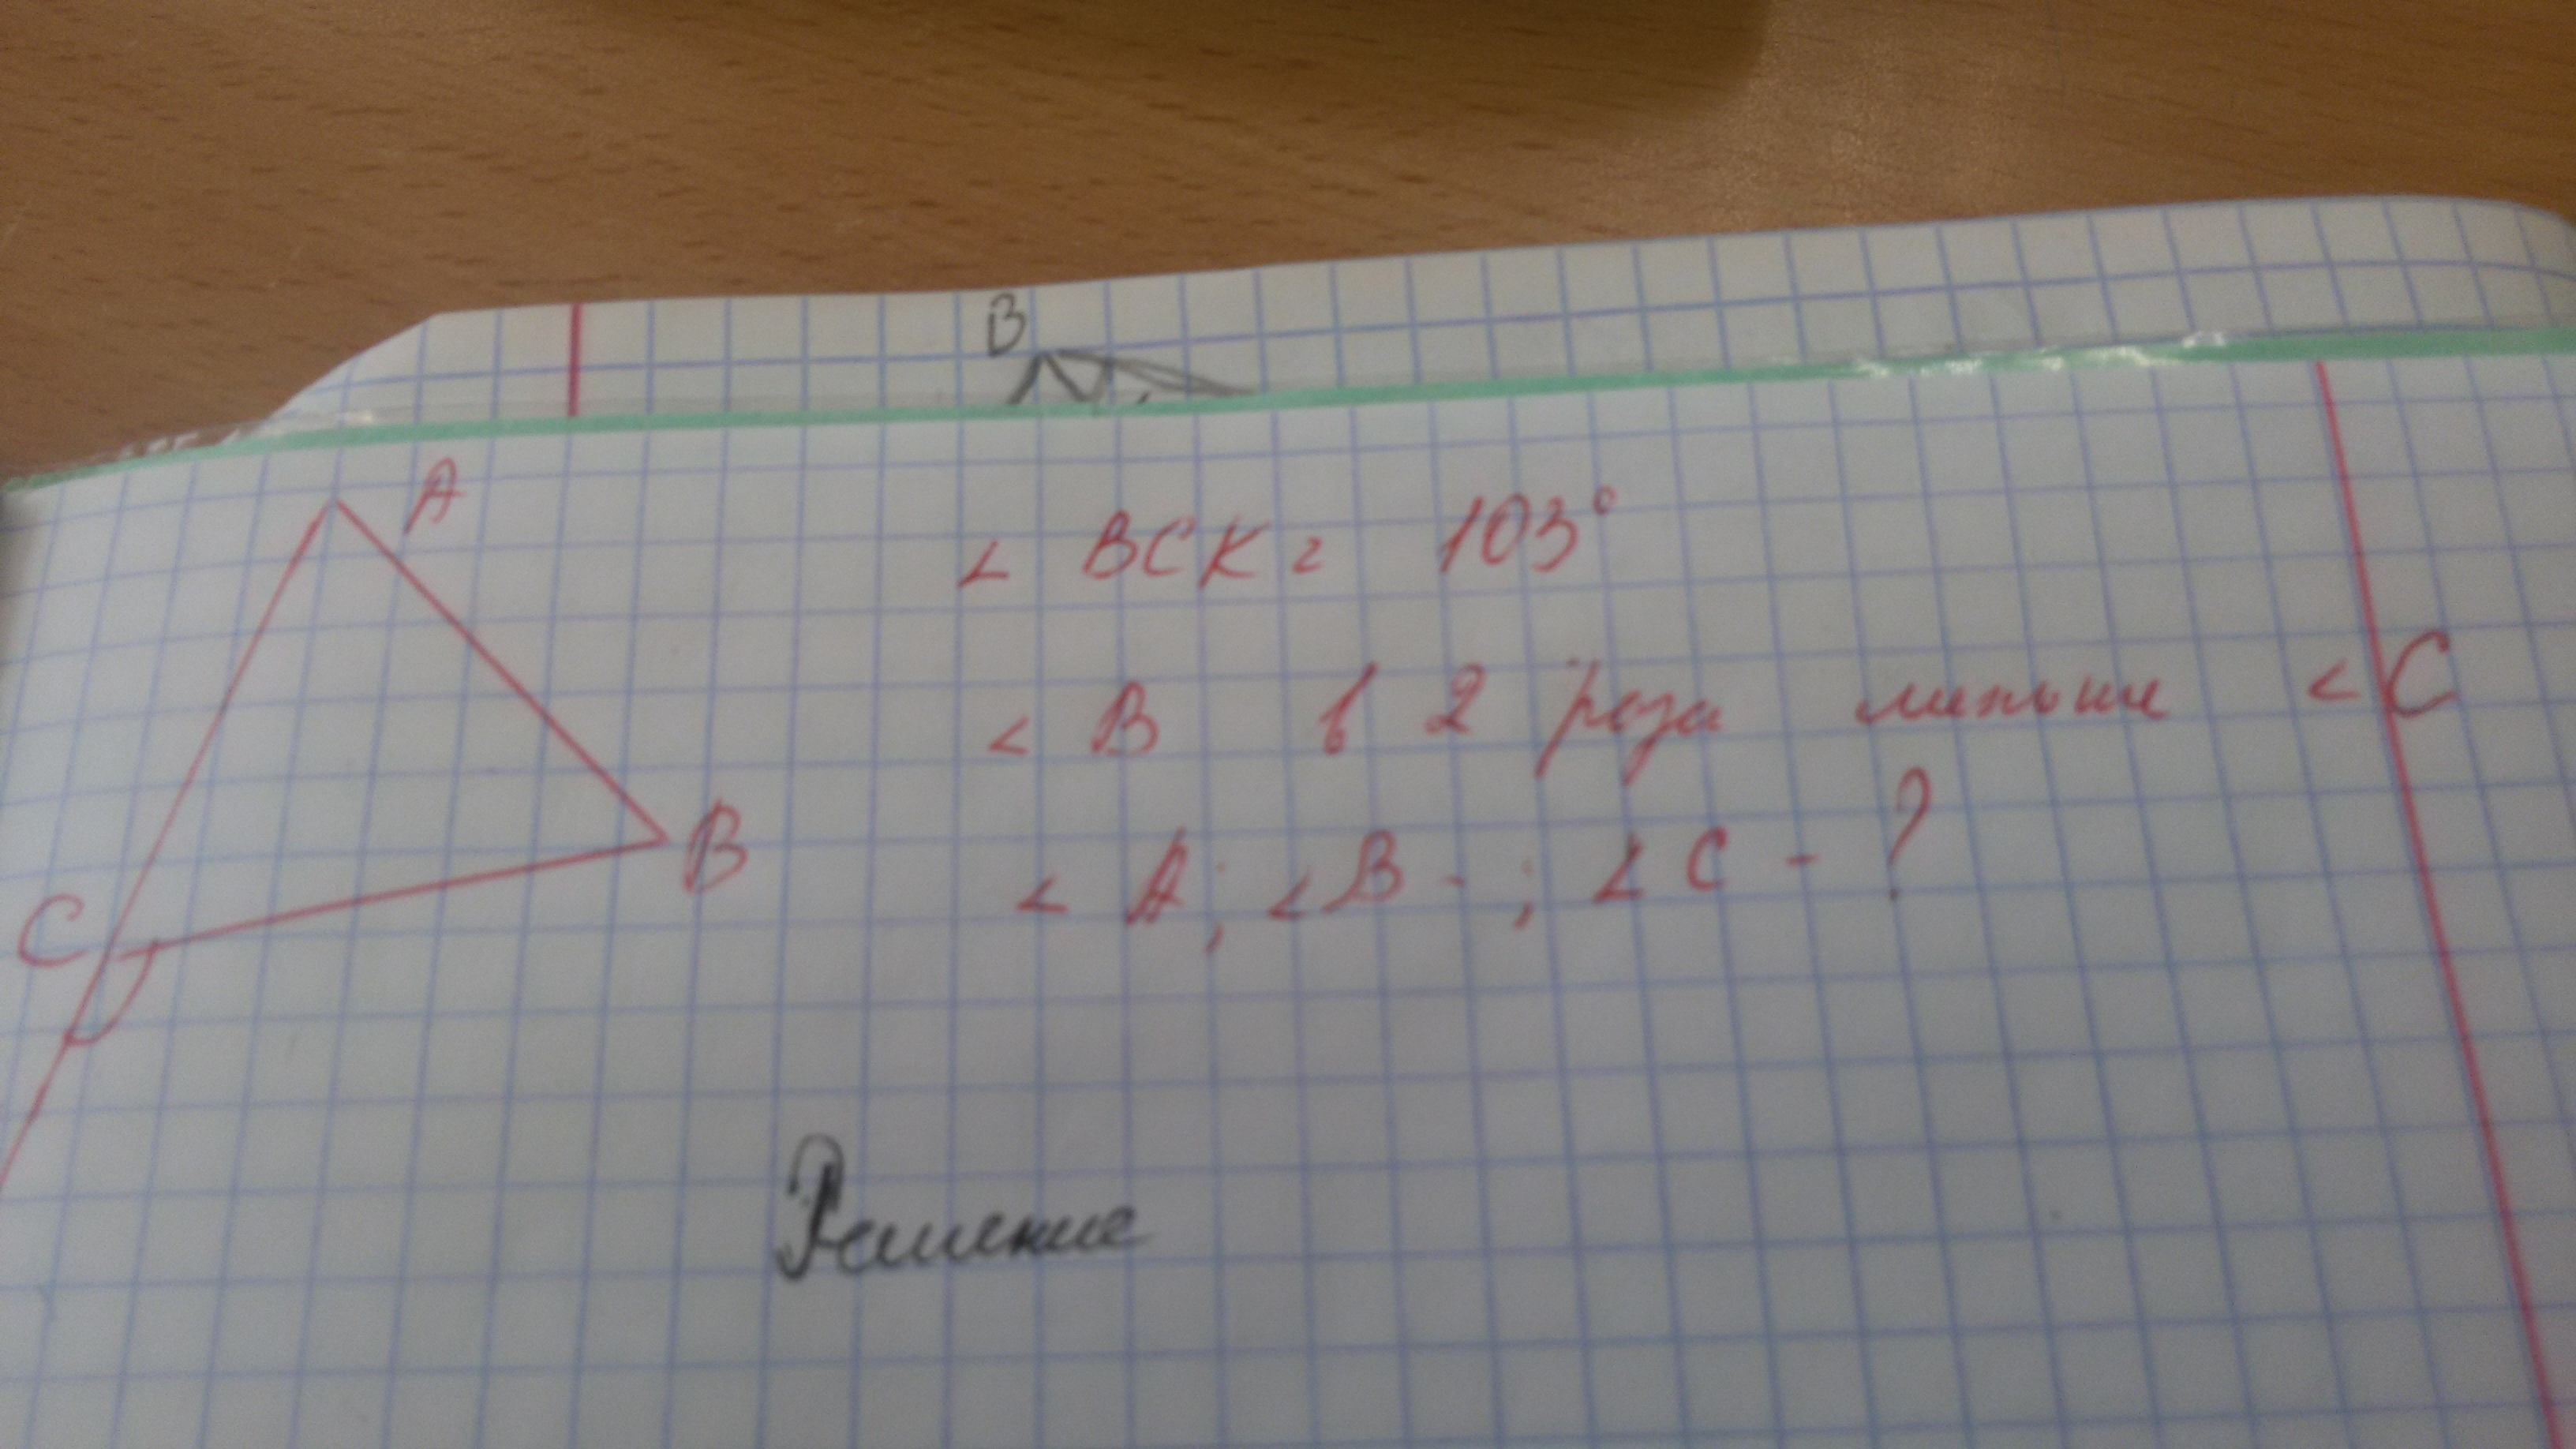 B
A
< BCK = 103°
< B в 2 раза меньше < C
B
< A; < B - ; < C - ?
C
Решение